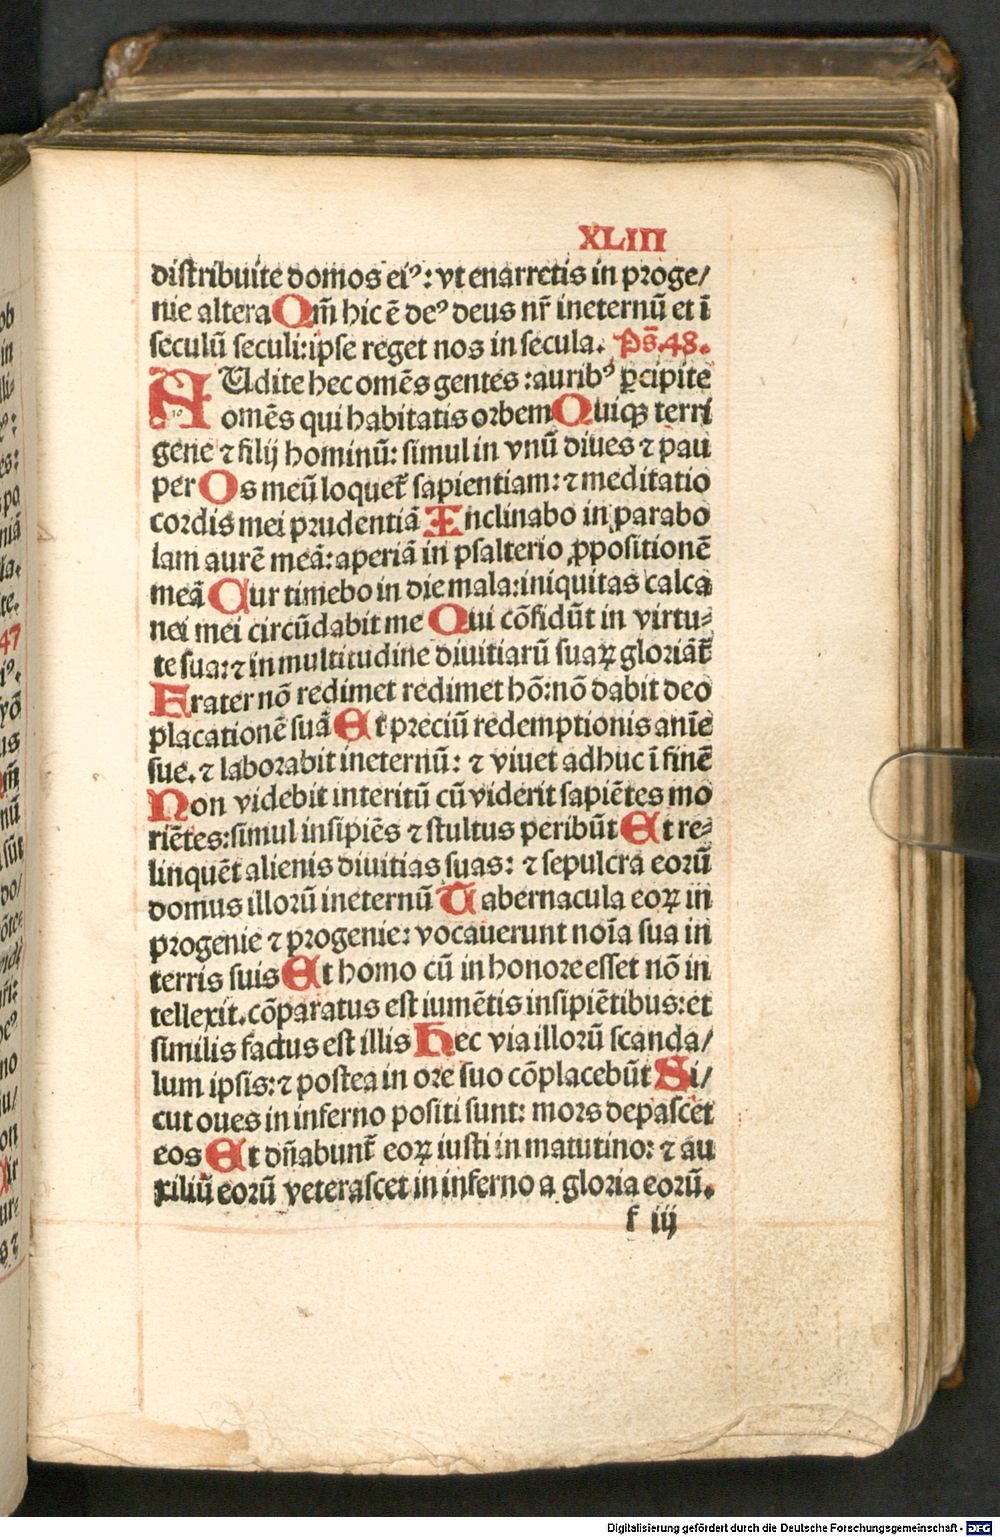 XLIII
distribuite domos eiꝰ: vt enarretis in proge/
nie altera Qm̄ hic ē deꝰ deus nr̄ ineternū et ī
seculū seculi: ipse reget nos in secula. Ps̄.48.
AUdite hec omēs gentes: auribꝰ ꝑcipite
omēs qui habitatis orbem Quiqꝫ terri
gene ⁊ filij hominū: simul in vnū diues ⁊ pau
per Os meū loquet̄ sapientiam: ⁊ meditatio
cordis mei prudentiā Inclinabo in parabo
lam aurē meā: aperiā in psalterio ꝓpositionē
meā Cur timebo in die mala: iniquitas calca
nei mei circūdabit me Qui cōfidūt in virtu-
te sua: ⁊ in multitudine diuitiarū suaꝝ gloriāt̄
Frater nō redimet redimet hō: nō dabit deo
placationē suā Et preciū redemptionis anīe
sue. ⁊ laborabit ineternū: ⁊ viuet adhuc ī finē
Non videbit interitū cū viderit sapiētes mo
riētes: simul insipiēs ⁊ stultus peribūt Et re-
linquēt alienis diuitias suas: ⁊ sepulcra eorū
domus illorū ineternū Tabernacula eoꝝ in
progenie ⁊ progenie: vocauerunt noīa sua in
terris suis Et homo cū in honore esset nō in
tellexit. cōparatus est iumētis insipiētibus: et
similis factus est illis Hec via illorū scanda/
lum ipsis: ⁊ postea in ore suo cōplacebūt Si/
cut oues in inferno positi sunt: mors depascet
eos Et dn̄abunt̄ eoꝝ iusti in matutino: ⁊ au
xiliū eorū veterascet in inferno a gloria eorū.
f iij
Digitalisierung gefördert durch die Deutsche Forschungsgemeinschaft - DFG